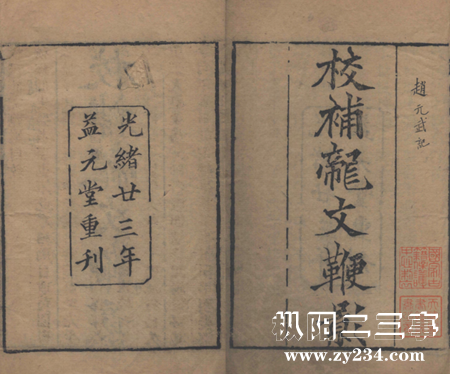 趙元
校補龍文鞭影
光緒廿三年
益元堂重刊
枞阳二三事
www.zy234.com